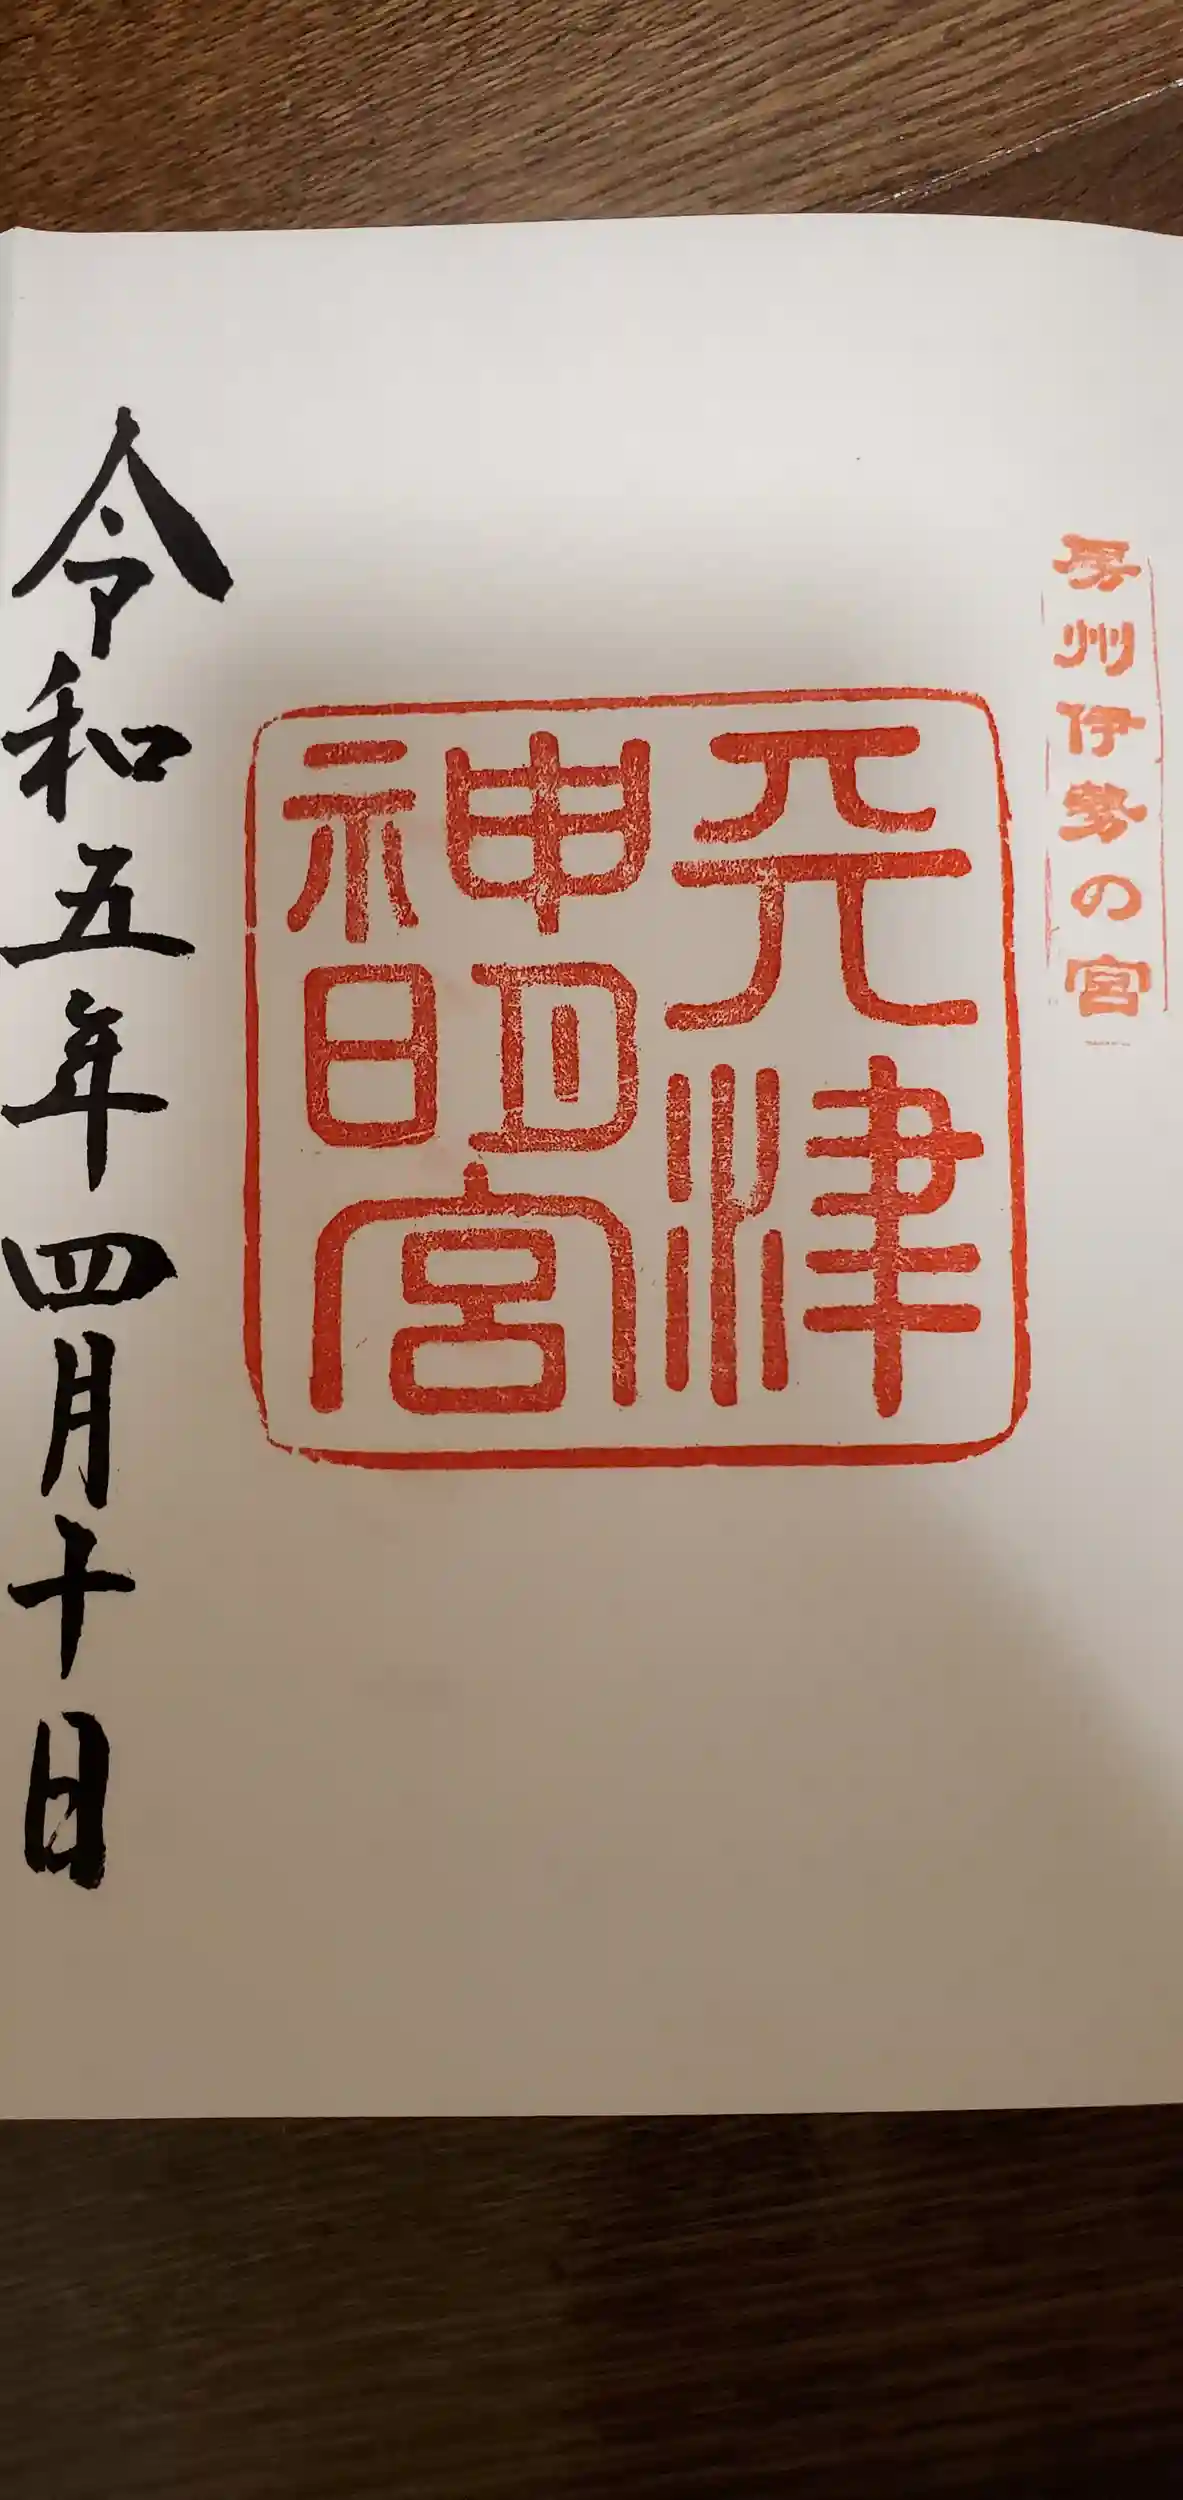 房州伊勢の宮
天津
神明宮
令和五年四月十日